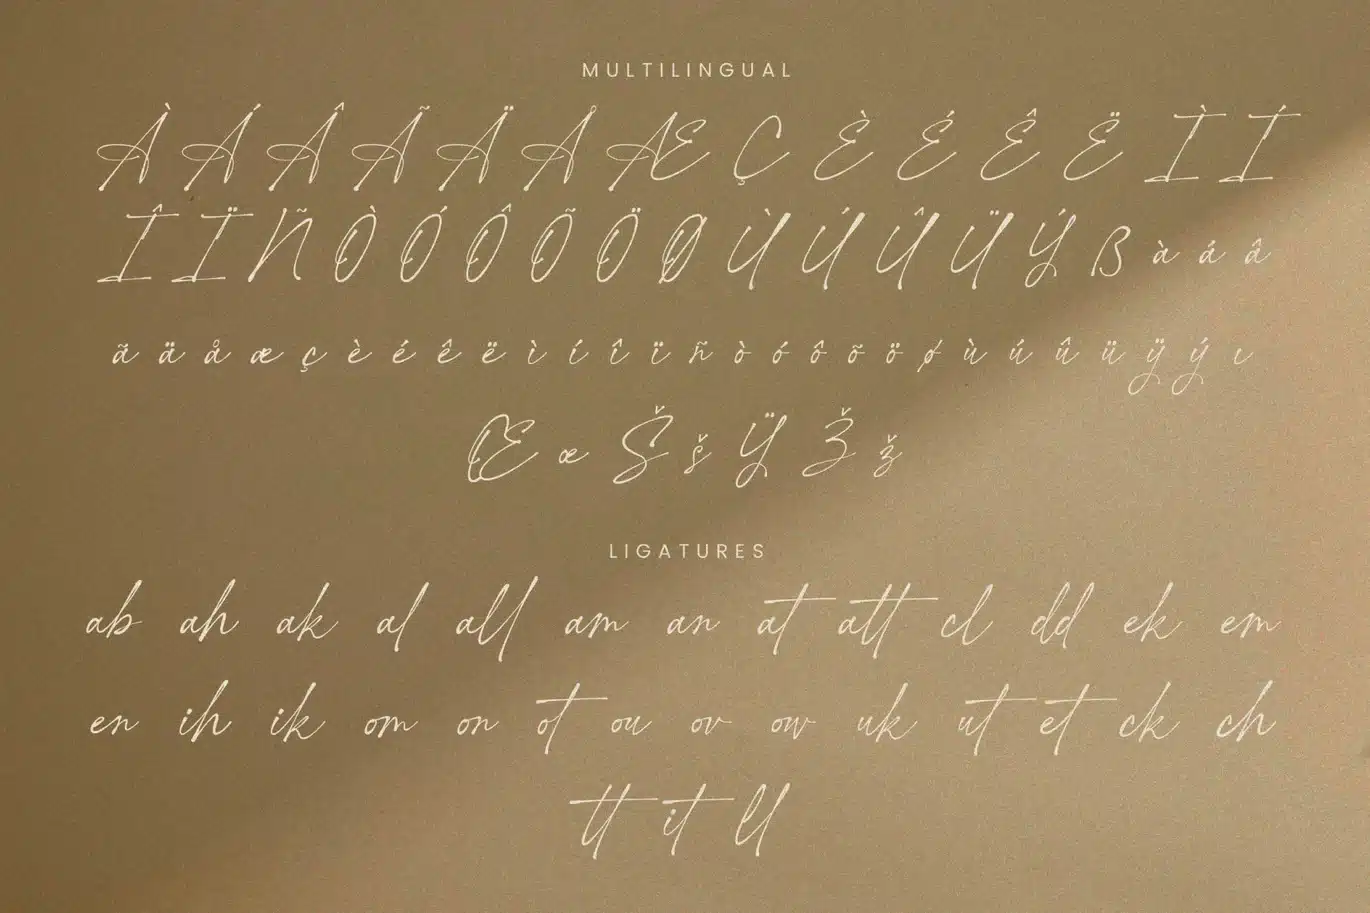 MULTILINGUAL
À Á Â Ã Ä Å Æ Ç È É Ê Ë Ì Í
Î Ï Ñ Ò Ó Ô Õ Ö Ø Ù Ú Û Ü Ý ß à á â
ã ä å æ ç è é ê ë ì í î ï ñ ò ó ô õ ö ø ù ú û ü ÿ ý ı
Œ œ Š š Ÿ Ž ž
LIGATURES
ab ah ak al all am an at att cl dd ek em
en ih ik om on ot ou ov ow uk ut et ck ch
tt it ll